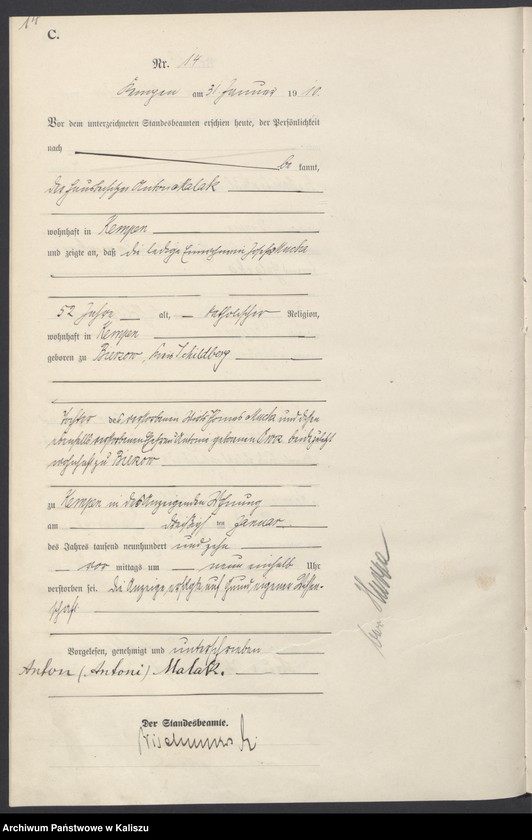 14
C.
Nr. 14
Kempen am 31 Januar 1910.
Vor dem unterzeichneten Standesbeamten erschien heute, der Persönlichkeit
nach
be kannt,
der Hausbesitzer Anton Malak
wohnhaft in Kempen
und zeigte an, daß die ledige Einwohnerin Josefa Mucha
52 Jahre alt, katholischer Religion,
wohnhaft in Kempen
geboren zu Bukow, Kreis Schildberg
Tochter des verstorbenen Wirts Thomas Mucha und dessen
ebenfalls verstorbenen Ehefrau Antonie geborenen beide zuletzt
wohnhaft zu Bukow
zu Kempen in des Anzeigenden Wohnung
am ten Januar
des Jahres tausend neunhundert und zehn
vor mittags um neun einhalb Uhr
verstorben sei. Die Anzeige erfolgte auf Grund eigener Wissen-
schaft.
Vorgelesen, genehmigt und unterschrieben
Anton (Antoni) Malak.
Der Standesbeamte.
Archiwum Państwowe w Kaliszu